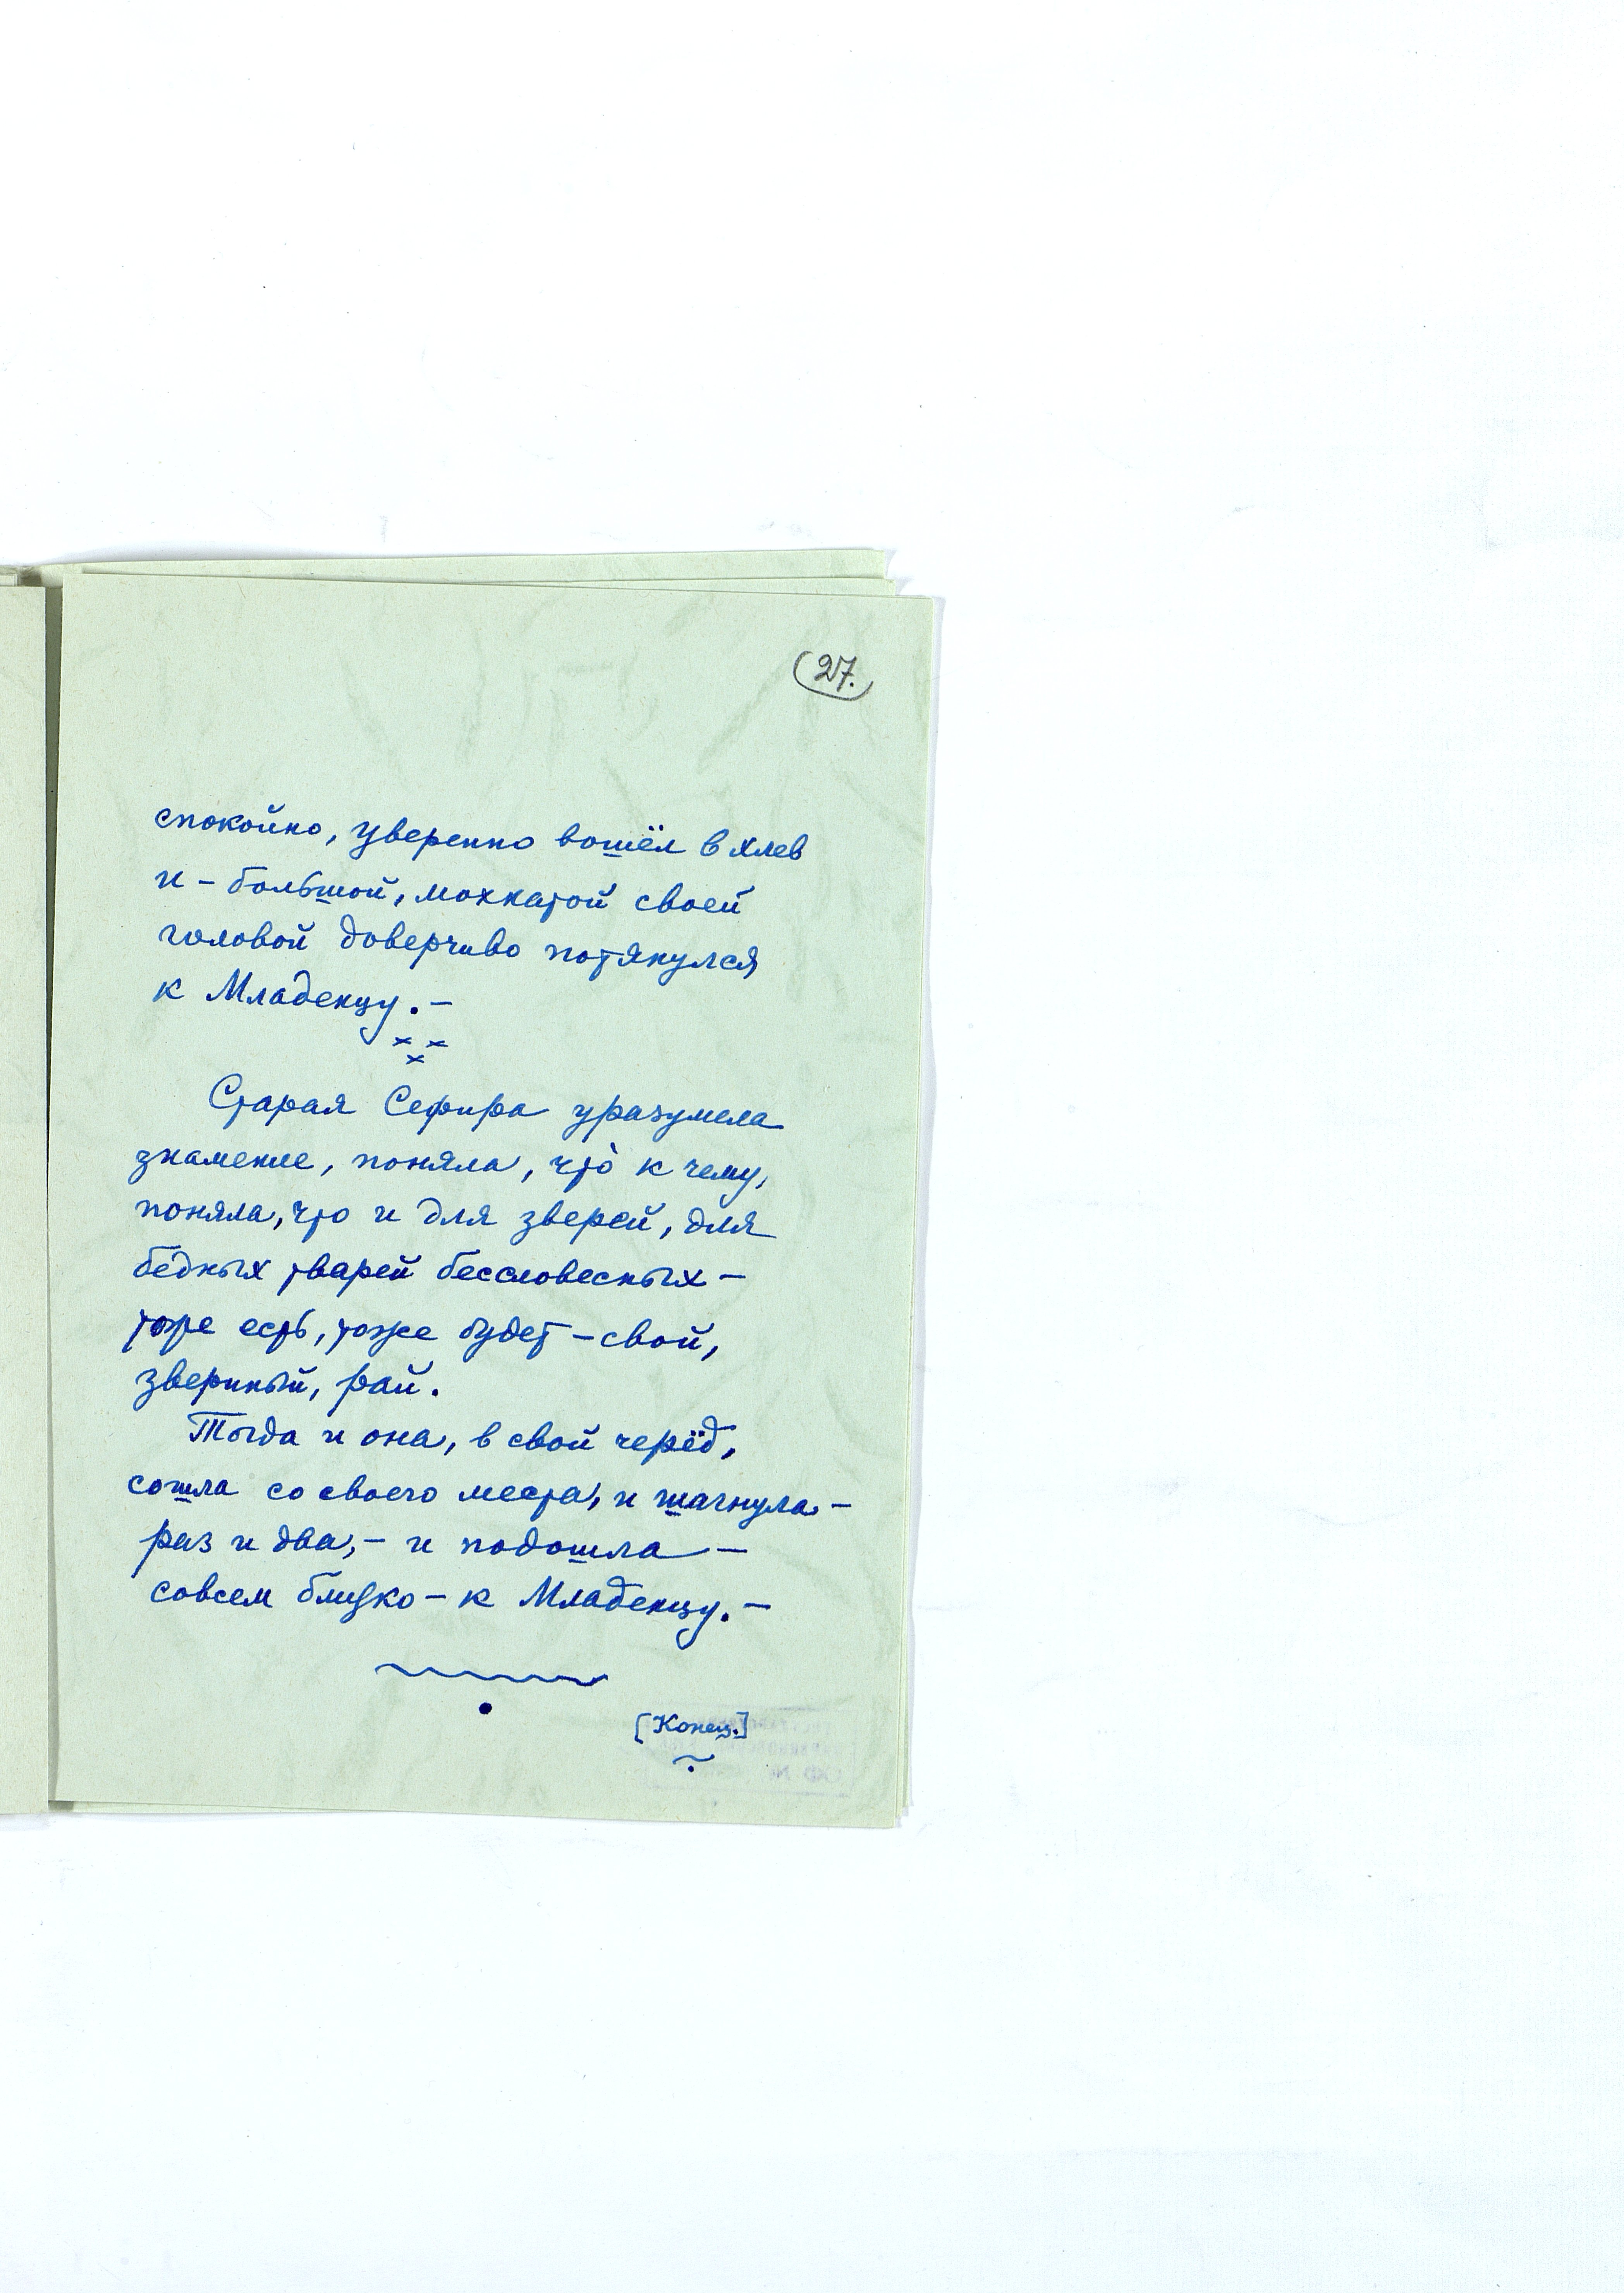 27.
спокойно, уверенно вошёл в хлев
и – большой, мохнатой своей
головой доверчиво потянулся
к Младенцу. –
× ×
×
Старая Сефира уразумела
знамение, поняла, что́ к чему,
поняла, что и для зверей, для
бедных тварей бессловесных –
тоже есть, тоже будет – свой,
звериный, рай.
Тогда и она, в свой черёд,
сошла со своего места, и шагнула –
раз и два, – и подошла –
совсем близко – к Младенцу. –
[Конец.]